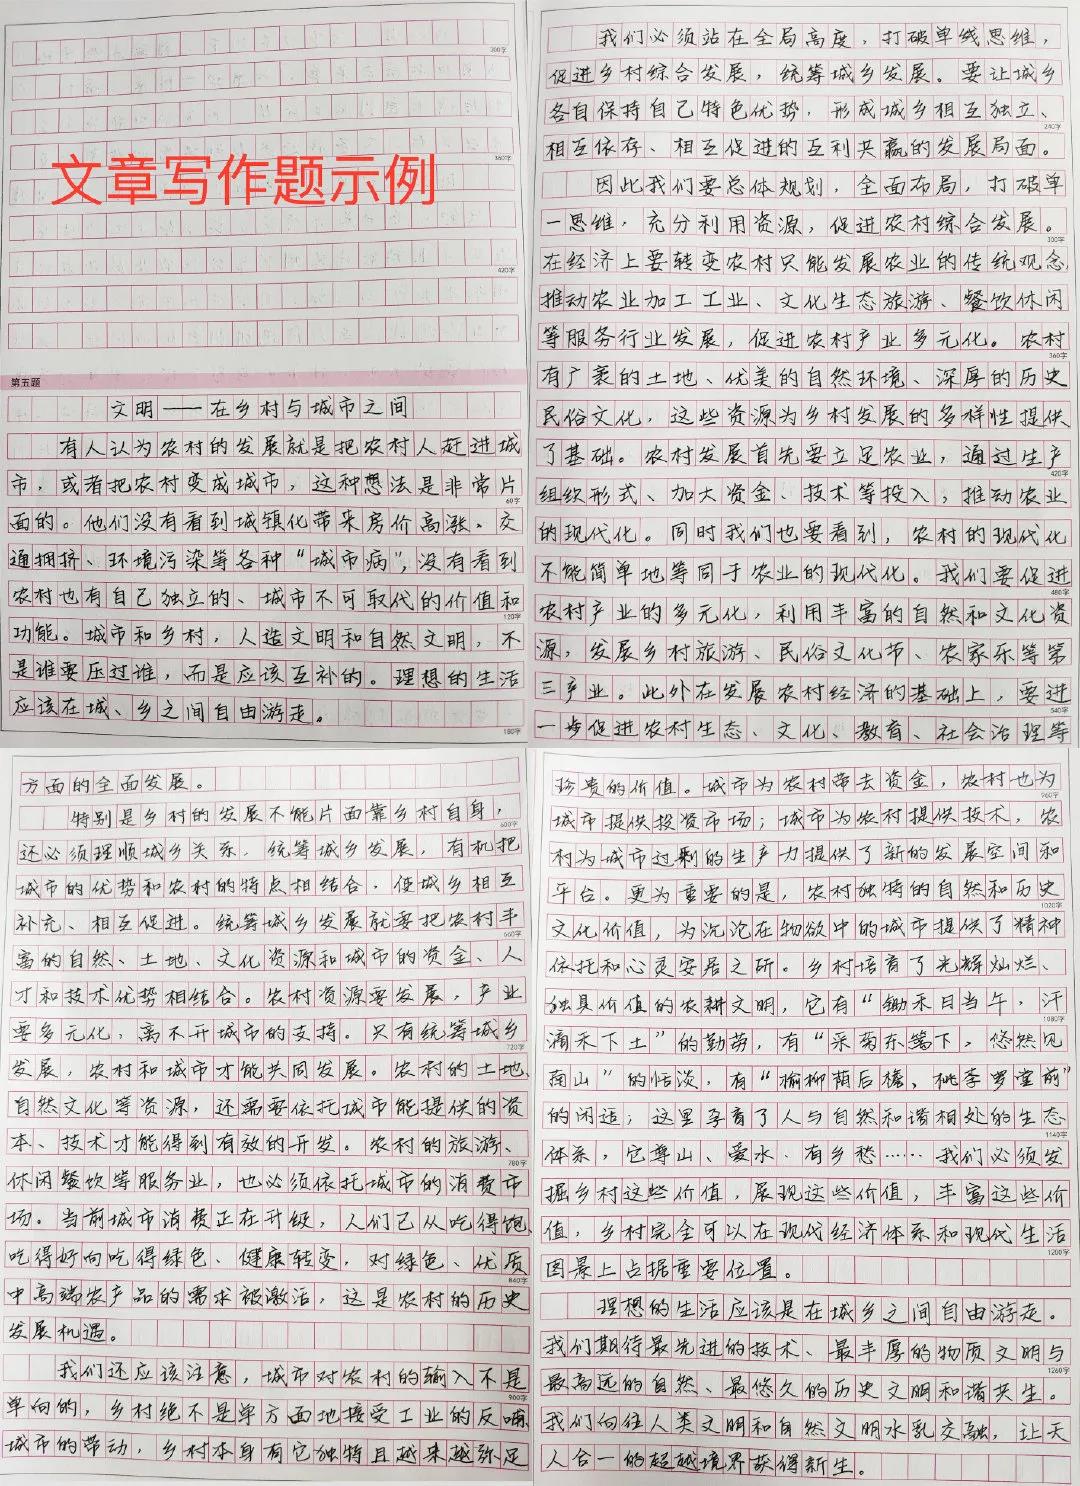 300字
360字
文章写作题示例
420字
第五题
文明——在乡村与城市之间
有人认为农村的发展就是把农村人赶进城
市，或者把农村变成城市，这种想法是非常片
60字
面的。他们没有看到城镇化带来房价高涨、交
通拥挤、环境污染等各种“城市病”，没有看到
农村也有自己独立的、城市不可取代的价值和
120字
功能。城市和乡村，人造文明和自然文明，不
是谁要压过谁，而是应该互补的。理想的生活
应该在城、乡之间自由游走。
180字
我们必须站在全局高度，打破单线思维，
促进乡村综合发展，统筹城乡发展。要让城乡
各自保持自己特色优势，形成城乡相互独立、
240字
相互依存、相互促进的互利共赢的发展局面。
因此我们要总体规划，全面布局，打破单
一思维，充分利用资源，促进农村综合发展。
300字
在经济上要转变农村只能发展农业的传统观念，
推动农业加工工业、文化生态旅游、餐饮休闲
等服务行业发展，促进农村产业多元化。农村
360字
有广袤的土地、优美的自然环境、深厚的历史
民俗文化，这些资源为乡村发展的多样性提供
了基础。农村发展首先要立足农业，通过生产
420字
组织形式、加大资金、技术等投入，推动农业
的现代化。同时我们也要看到，农村的现代化
不能简单地等同于农业的现代化。我们要促进
480字
农村产业的多元化，利用丰富的自然和文化资
源，发展乡村旅游、民俗文化节、农家乐等第
三产业。此外在发展农村经济的基础上，要进
540字
一步促进农村生态、文化、教育、社会治理等
方面的全面发展。
特别是乡村的发展不能片面靠乡村自身，
600字
还必须理顺城乡关系，统筹城乡发展，有机把
城市的优势和农村的特点相结合，使城乡相互
补充、相互促进。统筹城乡发展就要把农村丰
660字
富的自然、土地、文化资源和城市的资金、人
才和技术优势相结合。农村资源要发展，产业
要多元化，离不开城市的支持。只有统筹城乡
720字
发展，农村和城市才能共同发展。农村的土地、
自然文化等资源，还需要依托城市能提供的资
本、技术才能得到有效的开发。农村的旅游、
780字
休闲餐饮等服务业，也必须依托城市的消费市
场。当前城市消费正在升级，人们已从吃得饱、
吃得好向吃得绿色、健康转变，对绿色、优质
840字
中高端农产品的需求被激活，这是农村的历史
发展机遇。
我们还应该注意，城市对农村的输入不是
900字
单向的，乡村绝不是单方面地接受工业的反哺、
城市的带动，乡村本身有它独特且越来越弥足
珍贵的价值。城市为农村带去资金，农村也为
960字
城市提供投资市场；城市为农村提供技术，农
村为城市过剩的生产力提供了新的发展空间和
平台。更为重要的是，农村独特的自然和历史
1020字
文化价值，为沉沦在物欲中的城市提供了精神
依托和心灵安居之所。乡村培育了光辉灿烂、
独具价值的农耕文明，它有“锄禾日当午，汗
1080字
滴禾下土”的勤劳，有“采菊东篱下，悠然见
南山”的恬淡，有“榆柳荫后檐，桃李罗堂前”
的闲适；这里孕育了人与自然和谐相处的生态
1140字
体系，它尊山、爱水、有乡愁……我们必须发
掘乡村这些价值，展现这些价值，丰富这些价
值，乡村完全可以在现代经济体系和现代生活
1200字
图景上占据重要位置。
理想的生活应该是在城乡之间自由游走。
我们期待最先进的技术、最丰厚的物质文明与
1260字
最高远的自然、最悠久的历史文明和谐共生。
我们向往人类文明和自然文明水乳交融，让天
人合一的超越境界获得新生。